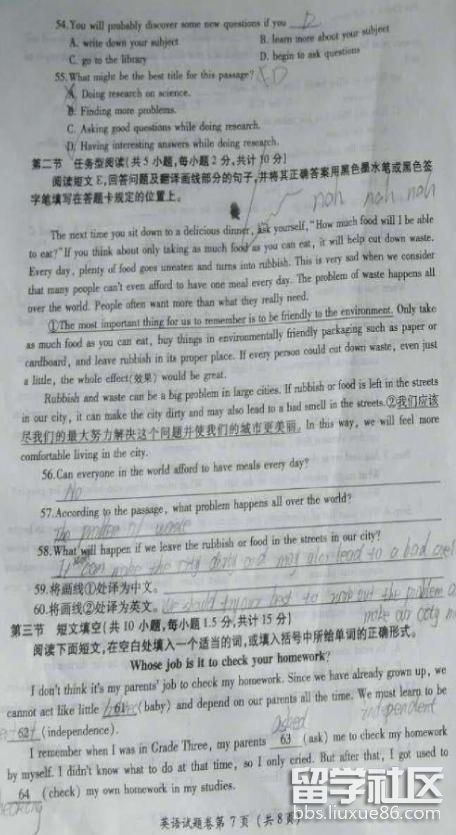 54. You will probably discover some new questions if you D
A. write down your subject
B. learn more about your subject
C. go to the library
D. begin to ask questions
55. What might be the best title for this passage? D
A. Doing research on science.
B. Finding more problems.
C. Asking good questions while doing research.
D. Having interesting answers while doing research.
第二节 任务型阅读(共5小题,每小题2分,共计10分)
阅读短文E,回答问题及翻译画线部分的句子,并将其正确答案用黑色墨水笔或黑色签
字笔填写在答题卡规定的位置上。
nah nah nah
The next time you sit down to a delicious dinner, ask yourself, "How much food will I be able
to eat?" If you think about only taking as much food as you can eat, it will help cut down waste.
Every day, plenty of food goes uneaten and turns into rubbish. This is very sad when we consider
that many people can't even afford to have one meal every day. The problem of waste happens all
over the world. People often want more than what they really need.
①The most important thing for us to remember is to be friendly to the environment. Only take
as much food as you can eat, buy things in environmentally friendly packaging such as paper or
cardboard, and leave rubbish in its proper place. If every person could cut down waste, even just
a little, the whole effect(效果) would be great.
Rubbish and waste can be a big problem in large cities. If rubbish or food is left in the streets
in our city, it can make the city dirty and may also lead to a bad smell in the streets.②我们应该
尽我们的最大努力解决这个问题并使我们的城市更美丽. In this way, we will feel more
comfortable living in the city.
56. Can everyone in the world afford to have meals every day?
No
57. According to the passage, what problem happens all over the world?
The problem of waste
58. What will happen if we leave the rubbish or food in the streets in our city?
It can make the city dirty and may also lead to a bad smell
59. 将画线①处译为中文。
60. 将画线②处译为英文。 We should try our best to work out the problem a
make our city m
第三节 短文填空(共10小题,每小题1.5分,共计15分)
阅读下面短文,在空白处填入一个适当的词,或填入括号中所给单词的正确形式。
Whose job is it to check your homework?
I don't think it's my parents' job to check my homework. Since we have already grown up, we
cannot act like little 61 (baby) and depend on our parents all the time. We must learn to be
62 (independence).
independent
asked
I remember when I was in Grade Three, my parents 63 (ask) me to check my homework
by myself. I didn't know what to do at that time, so I only cried. But after that, I got used to
64 (check) my own homework in my studies.
英语试题卷第7页(共8页)
留学社区
bbs.liuxue86.com